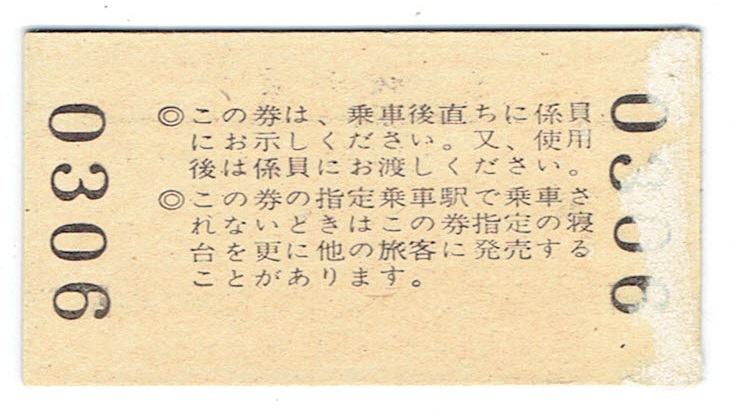 0306
◎この券は、乗車後直ちに係員
にお示しください。又、使用
後は係員にお渡しください。
◎この券の指定乗車駅で乗車さ
れないときはこの券指定の寝
台を更に他の旅客に発売する
ことがあります。
0306